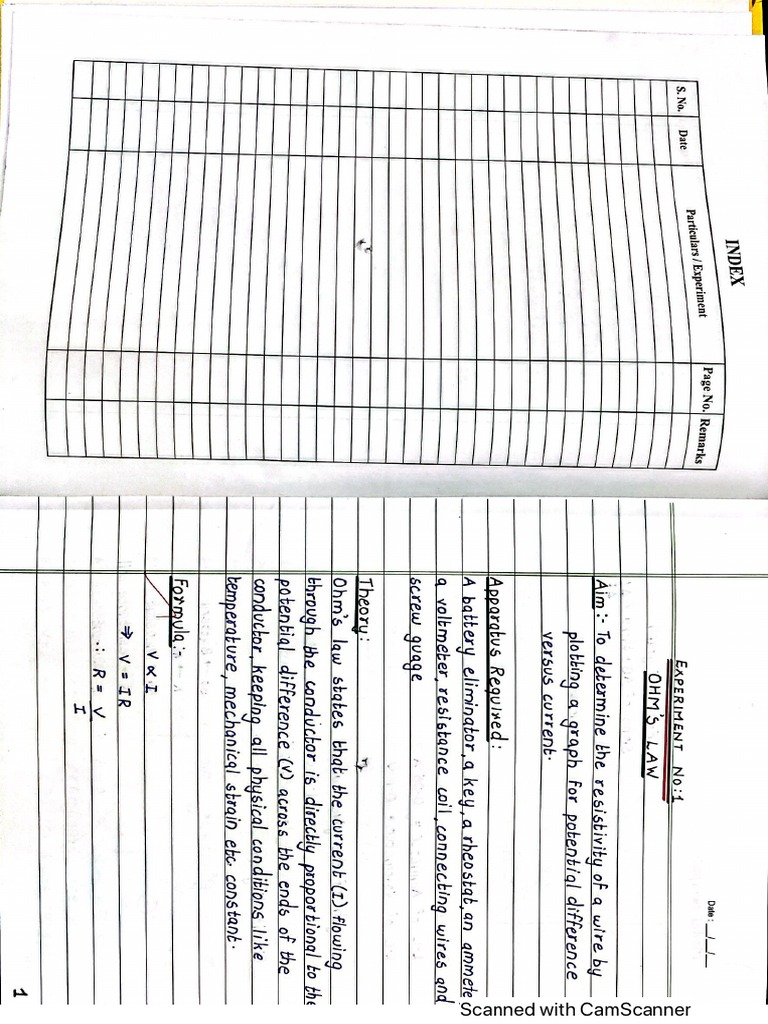 INDEX
S. No. Date Particulars / Experiment Page No. Remarks
Date : __/__/__
EXPERIMENT NO:1
OHM'S LAW
Aim:- To determine the resistivity of a wire by
plotting a graph for potential difference
versus current.
Apparatus Required:
A battery eliminator, a key, a rheostat, an ammete
a voltmeter, resistance coil, connecting wires and
screw guage
Theory:
Ohm's law states that the current (I) flowing
through the conductor is directly proportional to the
potential difference (V) across the ends of the
conductor, keeping all physical conditions like
temperature, mechanical strain etc constant.
Formula:-
V ∝ I
⇒ V = IR
∴ R = V
I
1
Scanned with CamScanner